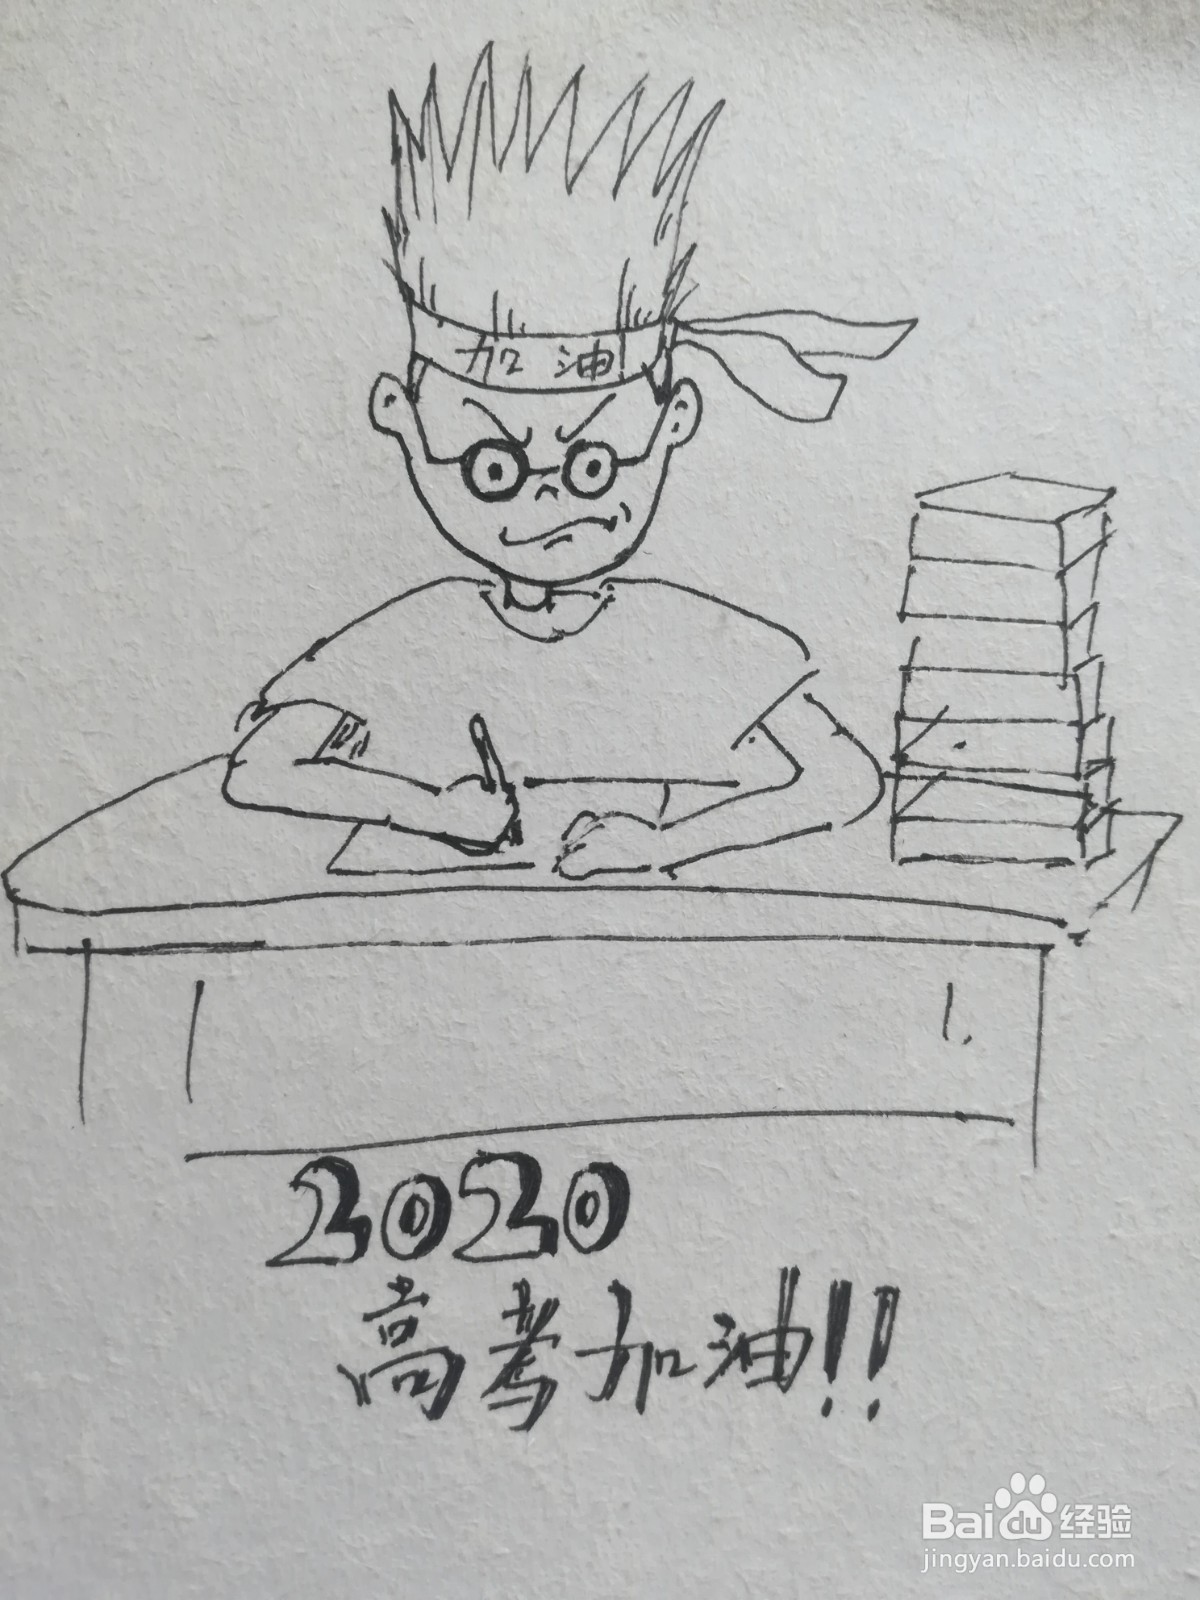 加油!
2020
高考加油!!
Baidu 经验
jingyan.baidu.com